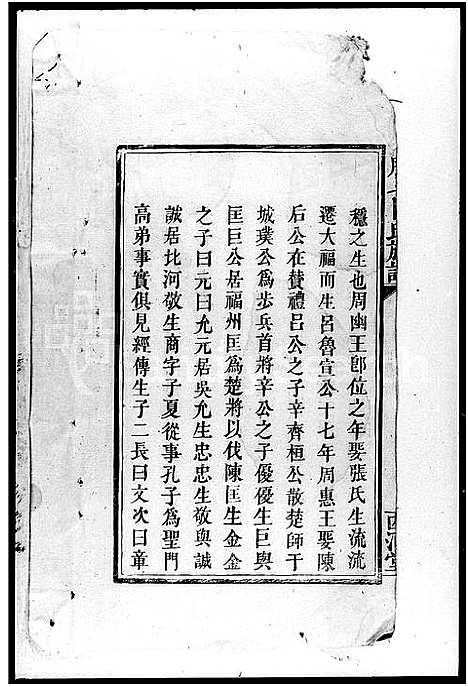 穩之生也周幽王卽位之年娶張氏生流流
遷大福而生呂魯宣公十七年周惠王娶陳
后公在賛禮呂公之子辛齊桓公散楚師于
城璞公爲步兵首將辛公之子優優生巨與
匡巨公居福州匡爲楚將以伐陳匡生金金
之子曰元曰允元居吳允生忠忠生敬與誠
誠居比河敬生商字子夏從事孔子爲聖門
高弟事實俱見經傳生子二長曰文次曰章
氏族譜
西河堂